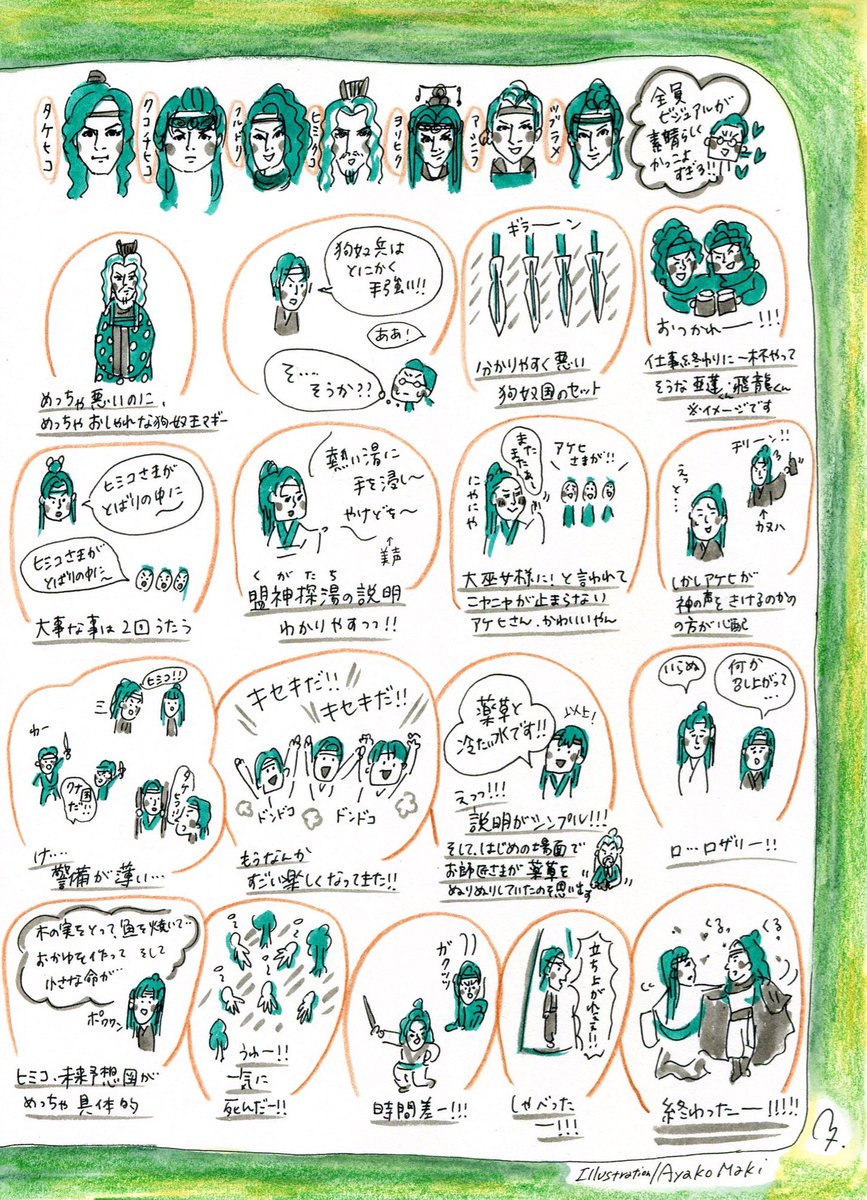 タケヒコ
クコチヒコ
フルドリ
ヒミクコ
ヨリヒク
アシラ
ツブラメ
全員
ビジュアルが
素晴らしく
かっこよ
すぎる!!
めっちゃ悪いのに、
めっちゃおしゃれな狗奴王マギー
狗奴兵は
とにかく
手強い!!
ああ!
そ…
そうか??
ギラーーン
分かりやすく悪い
狗奴国のセット
おつかれーー!!!
仕事終わりに一杯やって
そうな亜蓮くん・飛龍くん
※イメージです
ヒミコさまが
とばりの中に〜
ヒミコさまが
とばりの中に〜
大事な事は2回うたう
熱い湯に
手を浸し〜
やけどを〜
↑美声
くがたち
盟神探湯の説明
わかりやすっっ!!
にやにや
また
またぁ〜
アケヒ
さまが!!
大巫女様に!と言われて
ニヤニヤが止まらない
アケヒさん、かわいいやん
えっと…
チリーン!!
↑カヌハ
しかしアケヒが
神の声をきけるのか
の方が心配
ヒミコ!!
わー
クナ国
だ!!
タケヒコ!!
け…
警備が薄い…
キセキだ!!
キセキだ!!
ドンドコ
ドンドコ
もうなんか
すごい楽しくなってきた!!
薬草と
冷たい水です!!
以上!
えっっ!!!
説明がシンプル!!!
そして、はじめの場面で
お師匠さまが薬草を
ぬりぬりしていたのを思い出す
いらぬ
何か
召し上がって…
ロ…ロザリー!!
木の実をとって魚を焼いて…
おかゆを作って そして
小さな命が…
ポワワン
ヒミコ、未来予想図が
めっちゃ具体的
うわー!!
一気に
死んだー!!
ガクッッ
時間差ー!!!
立ち上がれさぁ!!
しゃべった
ー!!!
くる。
くる。
終わったーー!!!!!
Illustration/Ayako Maki